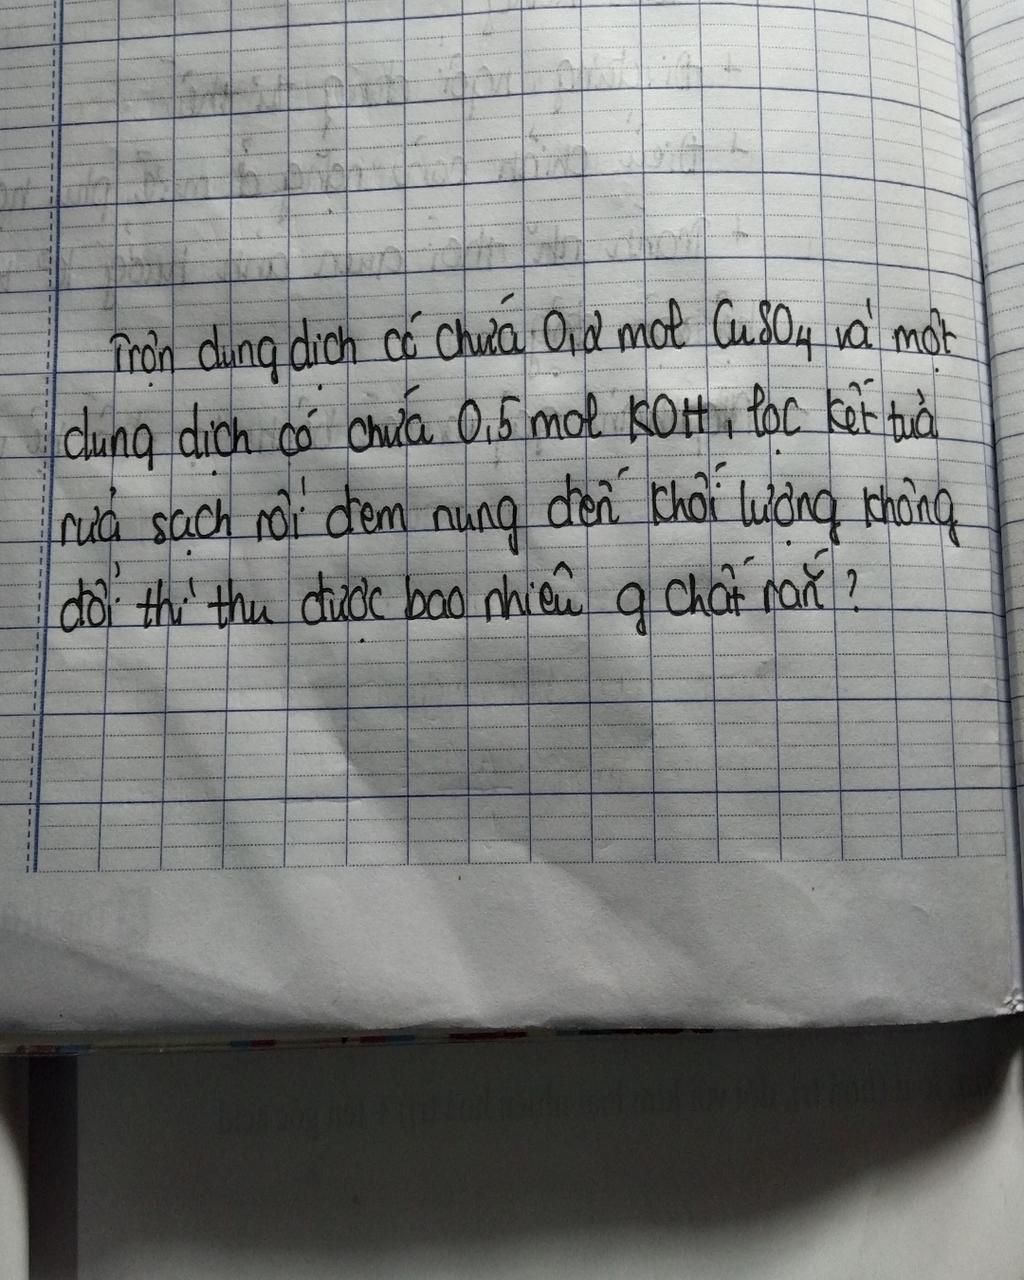 Trộn dung dịch có chứa 0,2 mol CuSO4 và một
dung dịch có chứa 0,5 mol KOH, lọc kết tủa
rửa sạch rồi đem nung đến khối lượng không
đổi thì thu được bao nhiêu g chất rắn?